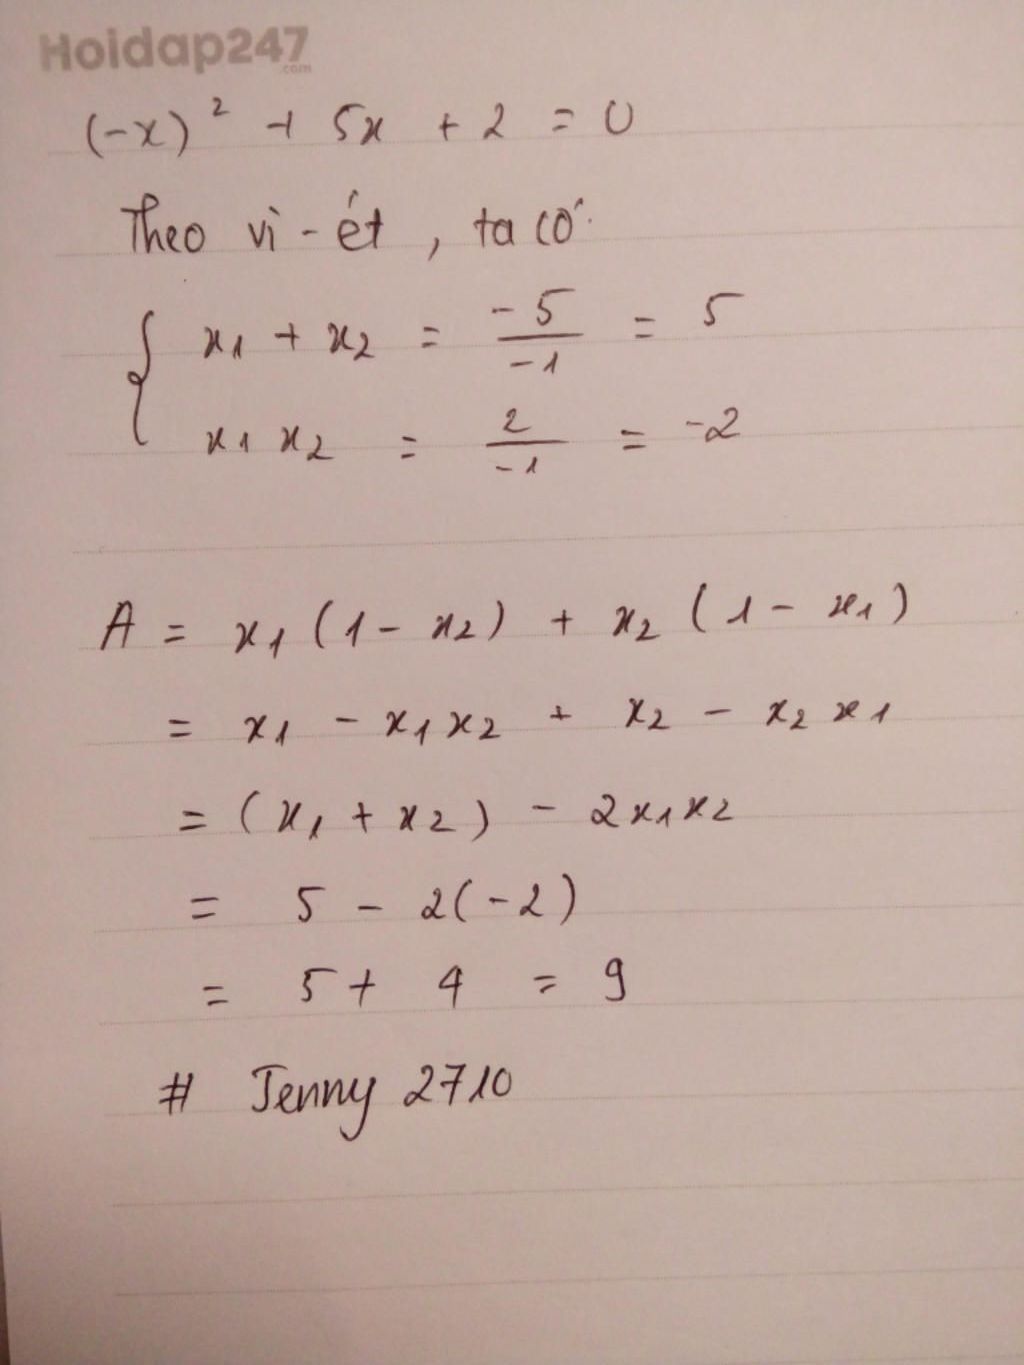 Hoidap247
.com
(-x)² + 5x + 2 = 0
Theo vi-ét, ta có
x₁ + x₂ = -5/-1 = 5
x₁ x₂ = 2/-1 = -2
A = x₁ (1 - x₂) + x₂ (1 - x₁)
= x₁ - x₁x₂ + x₂ - x₂x₁
= (x₁ + x₂) - 2x₁x₂
= 5 - 2(-2)
= 5 + 4 = 9
# Jenny 2710